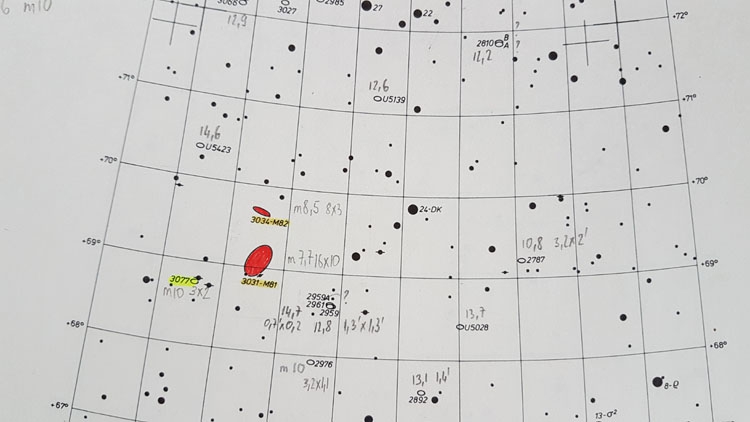 6 m10
3068
3027
2985
27
22
+72°
12,9
?
2810
B
A
?
12,2
+71°
12,6
U5139
+71°
14,6
U5423
+70°
+70°
m8,5 8x3
3034-M82
24-DK
+69°
m7,7 16x10
10,8 3,2'x2'
2787
+69°
3077
m10 3x2
3031-M81
2959A
?
2961
2959
14,7
0,7'x0,2
12,8 1,3'x1,3'
13,7
U5028
+68°
+68°
m10
2976
3,2x4,1
13,1 1,4'
2892
8-ϱ
+67°
13-σ²